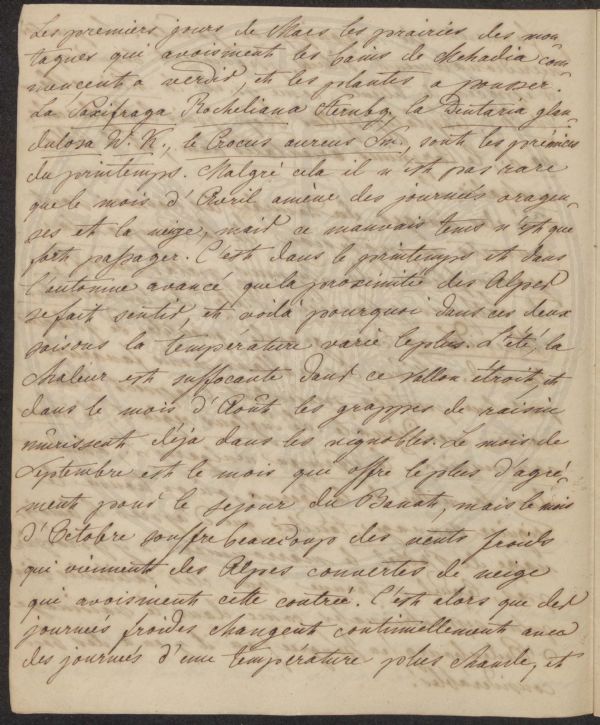 Les premiers jours de Mars les prairies des mon
tagnes qui avoisinent les bains de Mehadia com
mencent a verdir, et les plantes a pousser.
La Saxifraga Rocheliana Sternbg, la Dentaria glan
dulosa W. K., le Crocus aureus Sm., sont les prémices
du printemps. Malgré cela il n'est pas rare
que le mois d'Avril amène des journés orageu
ses et la neige, mais ce mauvais tems n'est que
fort passager. C'est dans le printemps et dans
l'automne avancé que la proximité des Alpes
se fait sentir, et voilà pourquoi dans ces deux
saisons la temperature varie le plus. L'été, la
chaleur est suffocante dans ce vallon étroit, et
dans le mois d'Août les grappes de raisin
mûrissent déja dans les vignobles. Le mois de
Septembre est le mois qui offre le plus d'agré
ments pour le sejour du Banat, mais le mois
d'Octobre souffre beaucoup des vents froids
qui viennent des Alpes couvertes de neige
qui avoisinent cette contrée. C'est alors que des
journeés froides changent continuellement avec
des journeés d'une température plus chaude, et